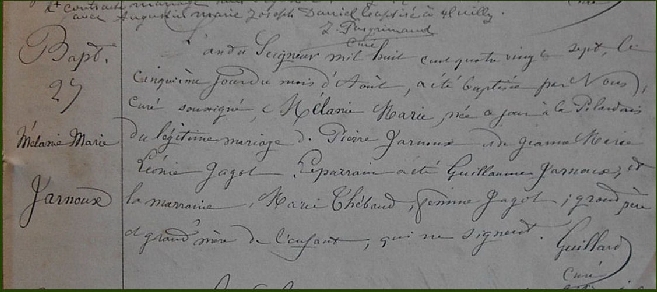 et contracté mariage
avec Augustin Marie Joseph Daniel baptisé à
Curé
Bapt.
27
Mélanie Marie
Jarnoux
L'an du Seigneur mil huit cent quatre vingt sept, le
cinquième jour du mois d'Août, a été baptisée par Nous,
curé soussigné, Mélanie Marie, née ce jour à la Pilardais
du légitime mariage de Pierre Jarnoux et de Jeanne Marie
Léonie Jagot. Le parrain a été Guillaume Jarnoux, et
la marraine, Marie Thébaud, femme Jagot, grand père
et grand'mère de l'enfant, qui ne signent. Guillard
Curé